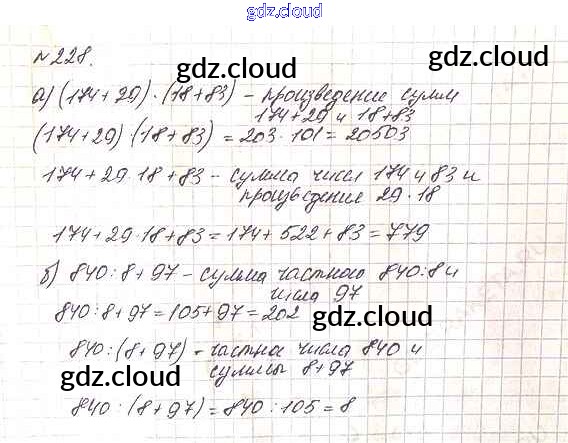 gdz.cloud
№228.
gdz.cloud gdz.cloud
а) (174+29)·(18+83) – произведение сумм
174+29 и 18+83
(174+29)·(18+83) = 203·101 = 20503
174+29·18+83 – сумма чисел 174 и 83 и
произведение 29·18
174+29·18+83 = 174+522+83 = 779
б) 840:8+97 – сумма частного 840:8 и
числа 97
840:8+97 = 105+97 = 202
gdz.cloud
840:(8+97) – частное числа 840 и
суммы 8+97
gdz.cloud
840:(8+97) = 840:105 = 8